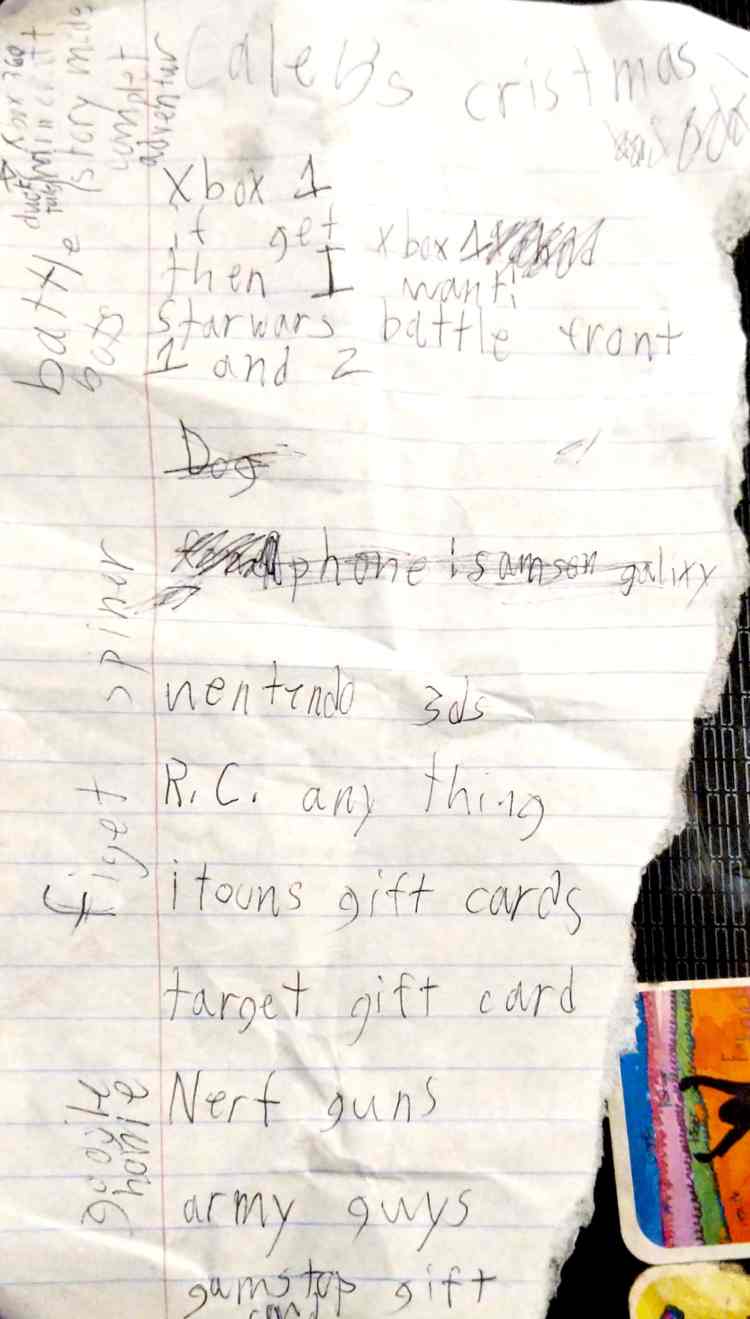 Caleb's cristmas
Xbox 1
if get xbox 1
then I want:
Starwars battle front
1 and 2
Dog
phone samson galixy
nentendo 3ds
R.C. any thing
itouns gift cards
target gift card
Nerf guns
army guys
gamstop gift
card
Xbox 360
minecraft
story mode
complet
adventur
battle
bots
figet spiner